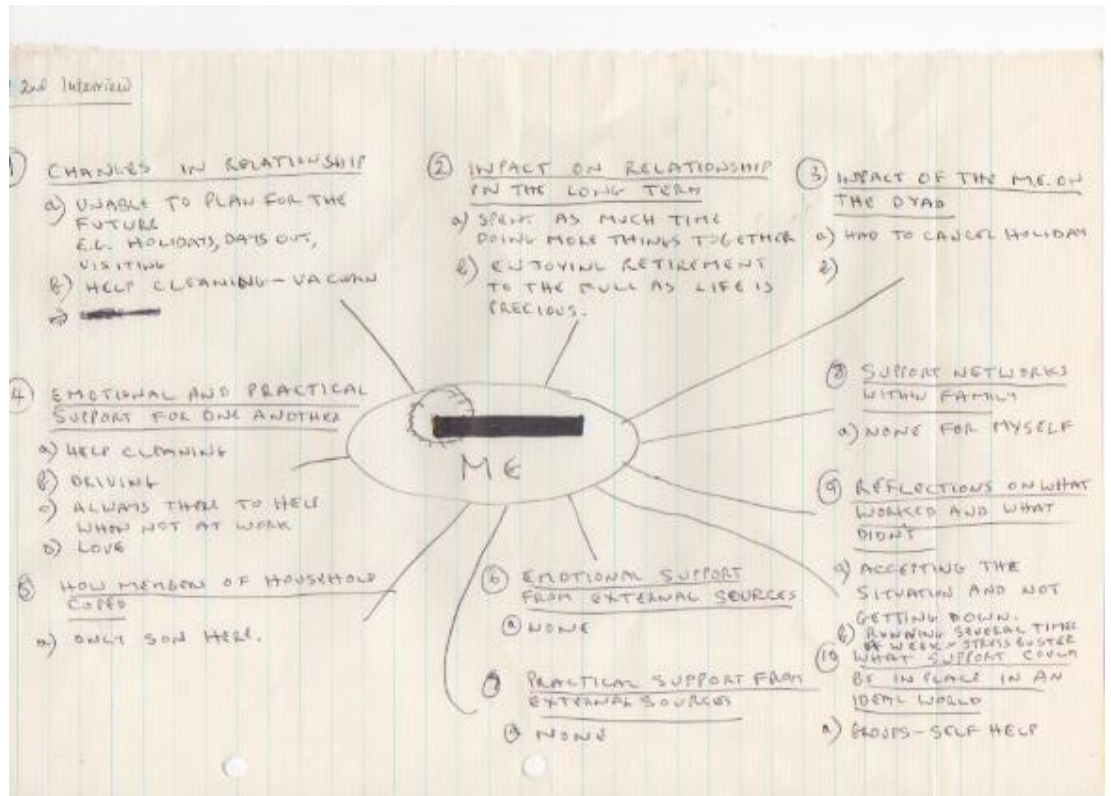 2nd Interview
1 CHANGES IN RELATIONSHIP
a) UNABLE TO PLAN FOR THE
FUTURE
E.G. HOLIDAYS, DAYS OUT,
VISITING
b) HELP CLEANING - VACUUM
2 IMPACT ON RELATIONSHIP
IN THE LONG TERM
a) SPENT AS MUCH TIME
DOING MORE THINGS TOGETHER
b) ENJOYING RETIREMENT
TO THE FULL AS LIFE IS
PRECIOUS.
3 IMPACT OF THE M.E. ON
THE DYAD
a) HAD TO CANCEL HOLIDAY
b)
4) EMOTIONAL AND PRACTICAL
SUPPORT FOR ONE ANOTHER
a) HELP CLEANING
b) DRIVING
c) ALWAYS THERE TO HELP
WHEN NOT AT WORK
D) LOVE
ME
5 HOW MEMBERS OF HOUSEHOLD
COPED
a) ONLY SON HERE.
6 EMOTIONAL SUPPORT
FROM EXTERNAL SOURCES
a NONE
7 PRACTICAL SUPPORT FROM
EXTERNAL SOURCES
a NONE
8 SUPPORT NETWORKS
WITHIN FAMILY
a) NONE FOR MYSELF
9 REFLECTIONS ON WHAT
WORKED AND WHAT
DIDN'T
a) ACCEPTING THE
SITUATION AND NOT
GETTING DOWN.
b) RUNNING SEVERAL TIMES
A WEEK - STRESS BUSTER
10 WHAT SUPPORT COULD
BE IN PLACE IN AN
IDEAL WORLD
a) GROUPS - SELF HELP